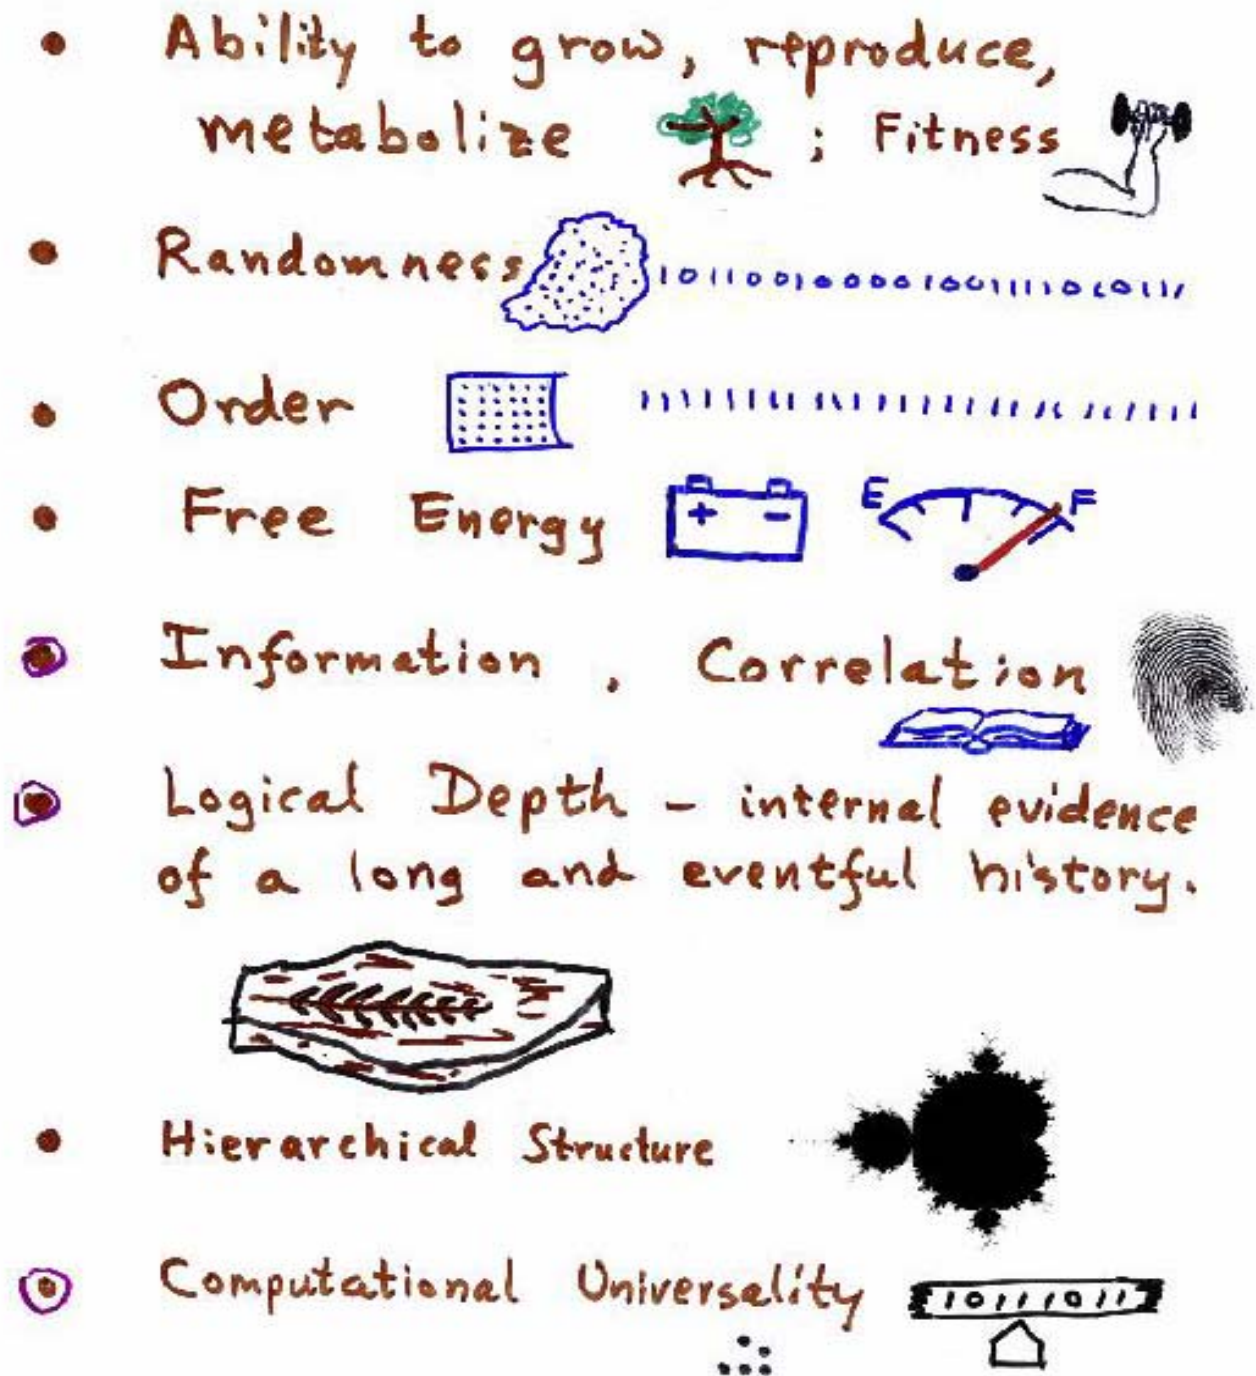 • Ability to grow, reproduce,
metabolize ; Fitness
• Randomness 1011001000010011110101011
• Order 1111111111111111111111111
• Free Energy + - E F
• Information, Correlation
• Logical Depth - internal evidence
of a long and eventful history.
• Hierarchical Structure
• Computational Universality 10111011